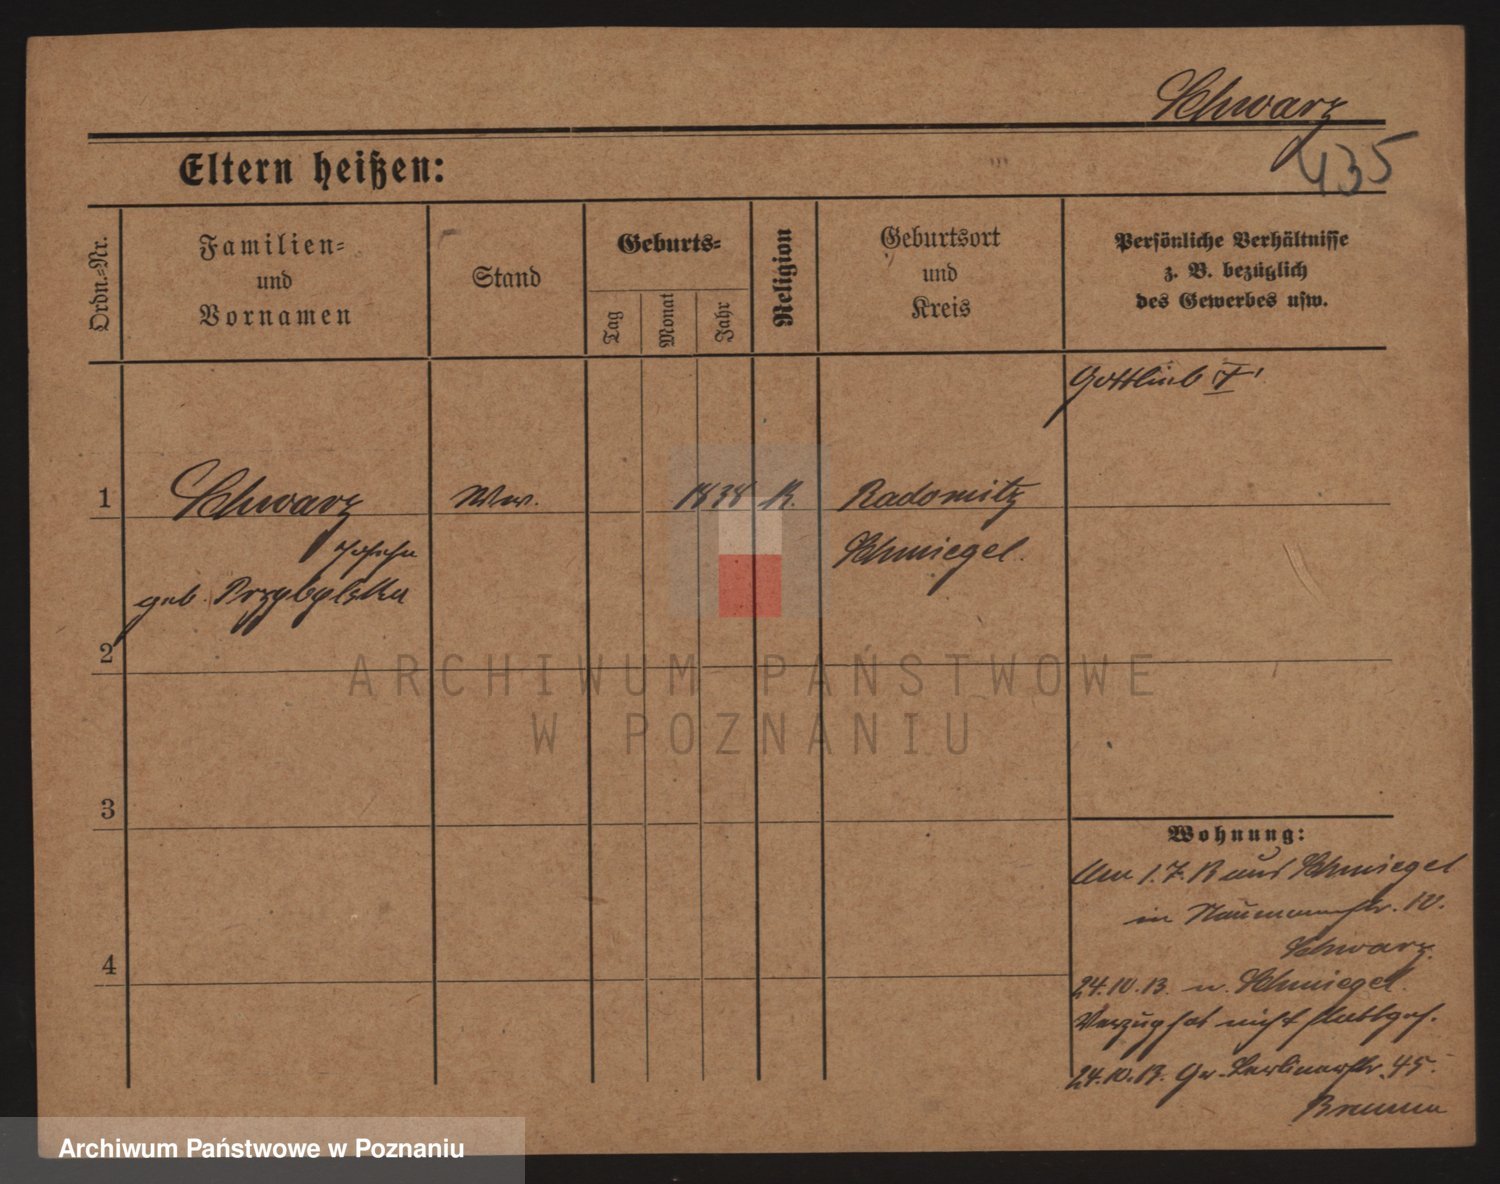 Schwarz
435
Eltern heißen:
Ordn.=Nr.
Familien=
und
Vornamen
Stand
Geburts=
Tag
Monat
Jahr
Religion
Geburtsort
und
Kreis
Persönliche Verhältnisse
z. B. bezüglich
des Gewerbes usw.
Gottlieb †
1
Schwarz
Ww.
1838
K.
Radomitz
Schmiegel.
geb. Przybylska
2
3
4
Wohnung:
Am 1.7.13 aus Schmiegel
in Naumannstr. 10.
Schwarz.
24.10.13. n. Schmiegel.
Verzug hat nicht stattgef.
24.10.13. Gr. Berlinerstr. 45.
ARCHIWUM PAŃSTWOWE
W POZNANIU
Archiwum Państwowe w Poznaniu